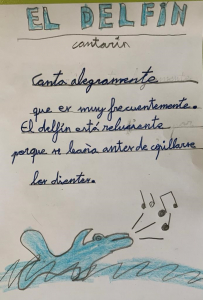 EL DELFIN
cantarín
Canta alegremente
que es muy frecuentemente.
El delfín está relucrante
porque se baña antes de cepillarse
los dientes.